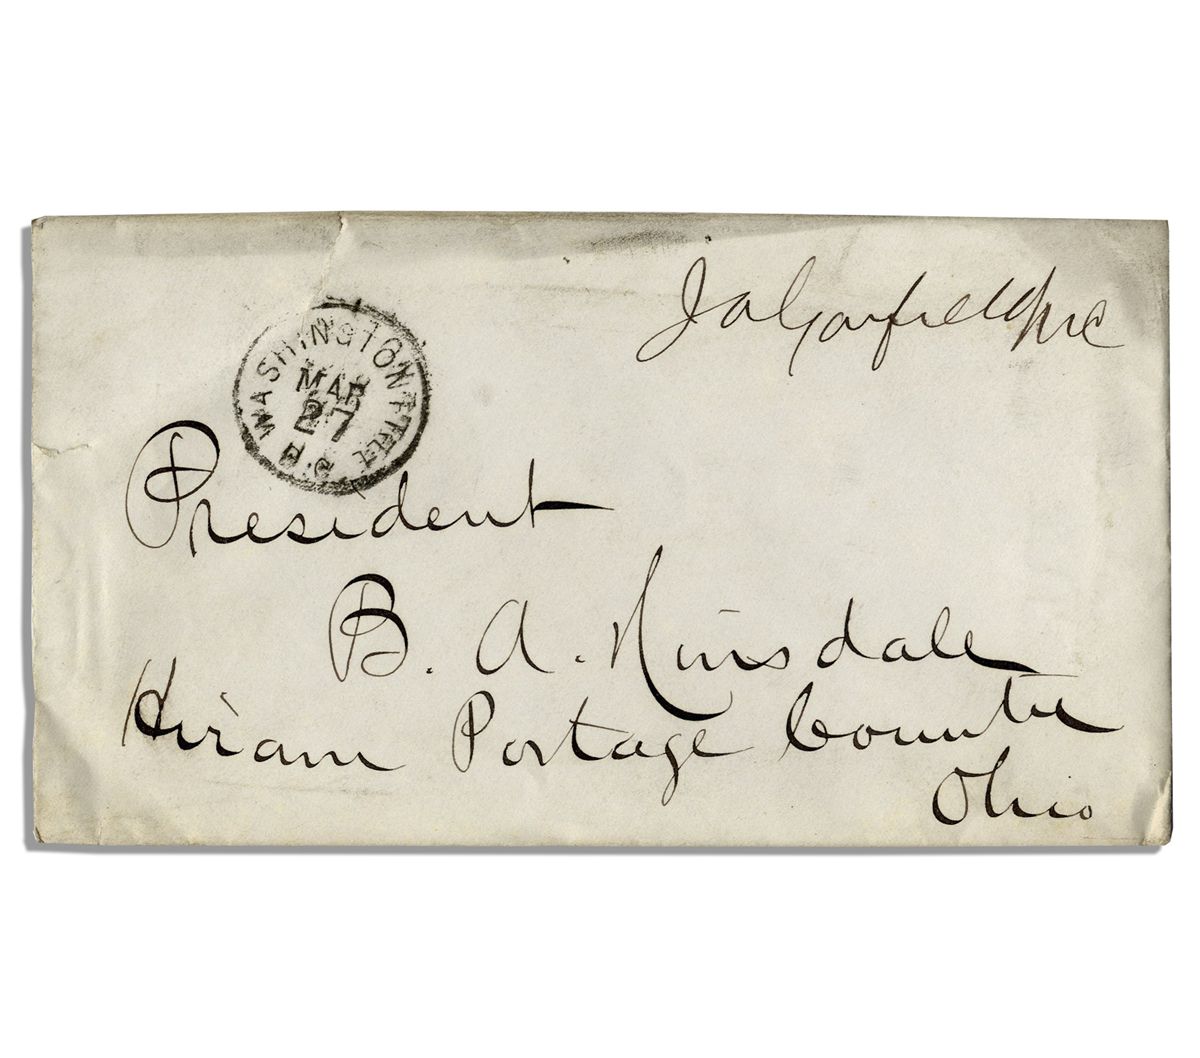 J A Garfield MC
WASHINGTON FREE D.C.
MAR
27
President
B. A. Hinsdale
Hiram Portage County
Ohio